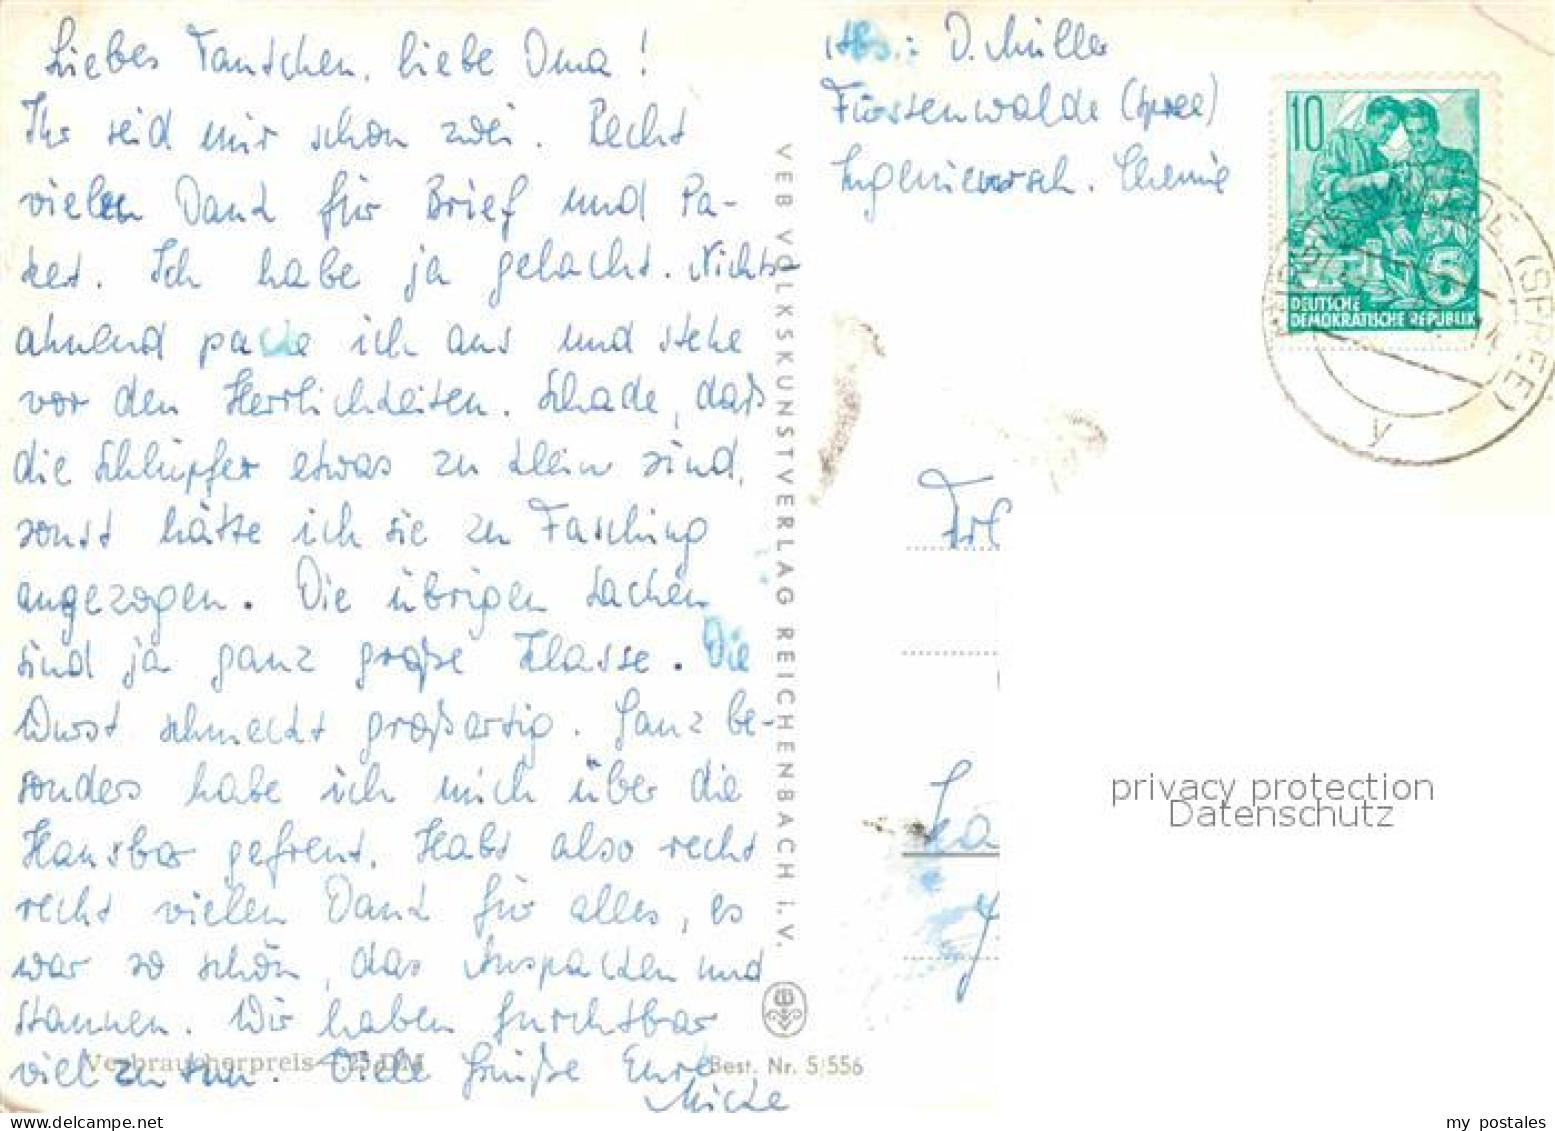 Liebes Tantchen, liebe Oma!
Ihr seid mir schon zwei. Recht
vielen Dank für Brief und Pa-
ket. Ich habe ja gelacht. Nichts-
ahnend packe ich aus und stehe
vor den Herrlichkeiten. Schade, daß
die Schlüpfer etwas zu klein sind,
sonst hätte ich sie zu Fasching
angezogen. Die übrigen Sachen
sind ja ganz große Klasse. Die
Wurst schmeckt großartig. Ganz be-
sonders habe ich mich über die
Hansbar gefreut. Habt also recht
recht vielen Dank für alles, es
war so schön, das Auspacken und
Staunen. Wir haben furchtbar
viel zu tun. Viele Grüße Eure
Micke
Verbraucherpreis -,25 DM
Best. Nr. 5/556
VEB VOLKSKUNSTVERLAG REICHENBACH i. V.
Abs.: D. Müller
Fürstenwalde (Spree)
Ingenieursch. Chemie
10
5
DEUTSCHE
DEMOKRATISCHE REPUBLIK
FÜRSTENWALDE (SPREE)
y
Frl
privacy protection
Datenschutz
my postales
www.delcampe.net